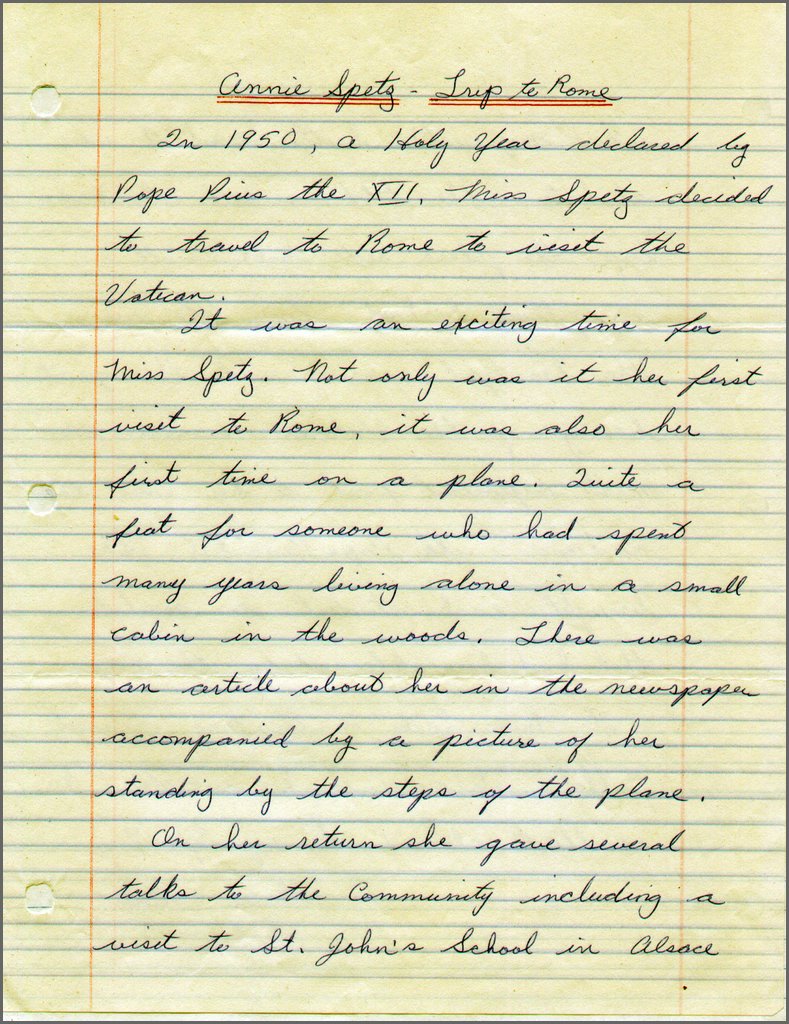 Annie Spetz - Trip to Rome
In 1950, a Holy Year declared by
Pope Pius the XII, Miss Spetz decided
to travel to Rome to visit the
Vatican.
It was an exciting time for
Miss Spetz. Not only was it her first
visit to Rome, it was also her
first time on a plane. Quite a
feat for someone who had spent
many years living alone in a small
cabin in the woods. There was
an article about her in the newspaper
accompanied by a picture of her
standing by the steps of the plane.
On her return she gave several
talks to the Community including a
visit to St. John's School in Alsace